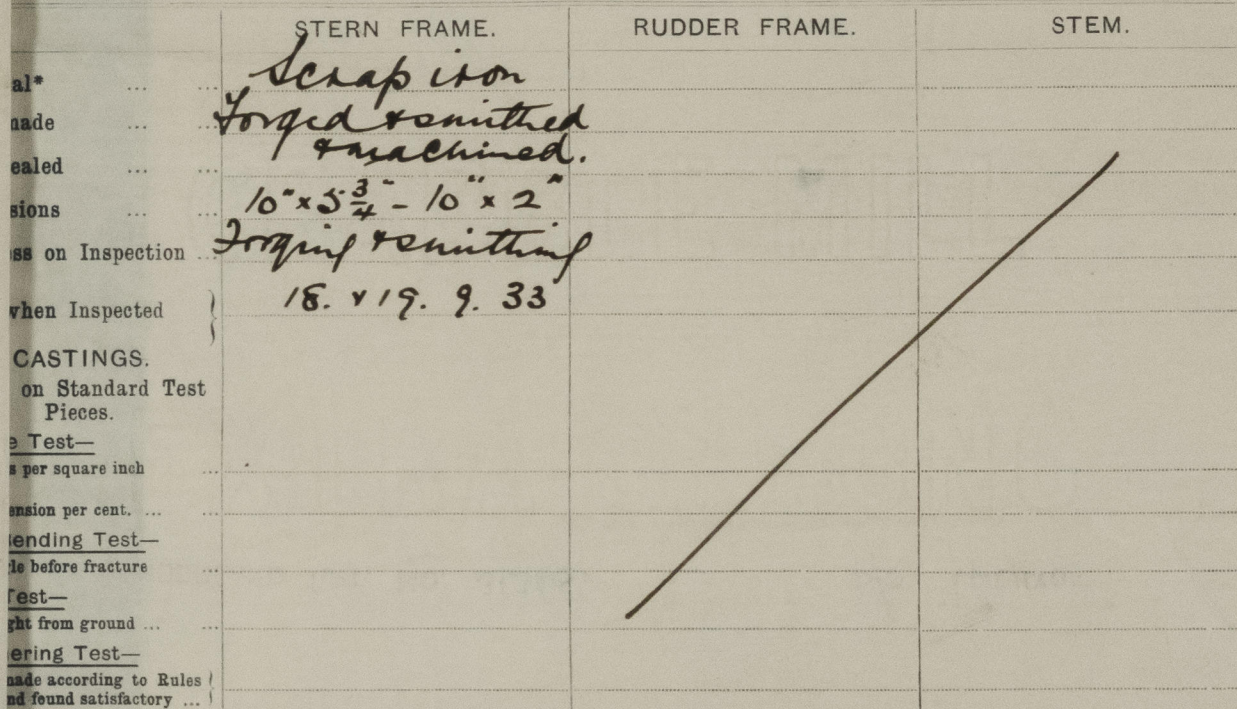 STERN FRAME. RUDDER FRAME. STEM.
al* ... ... Scrap iron
made ... ... Forged & smithed
& machined.
ealed ... ...
sions ... ... 10" x 5 3/4" - 10" x 2"
ss on Inspection ... Forging & smithing
when Inspected } 18. & 19. 9. 33
CASTINGS.
on Standard Test
Pieces.
e Test—
s per square inch ...
ension per cent. ... ...
ending Test—
le before fracture
Test—
ght from ground ... ...
ering Test—
made according to Rules
nd found satisfactory ...